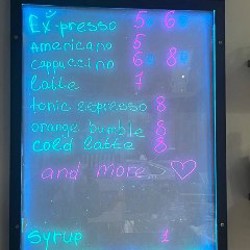 Ex-presso 5 6
Americano 5
cappuccino 6 8
latte 7
tonic espresso 8
orange bumble 8
cold latte 8
and more ♡
Syrup 1